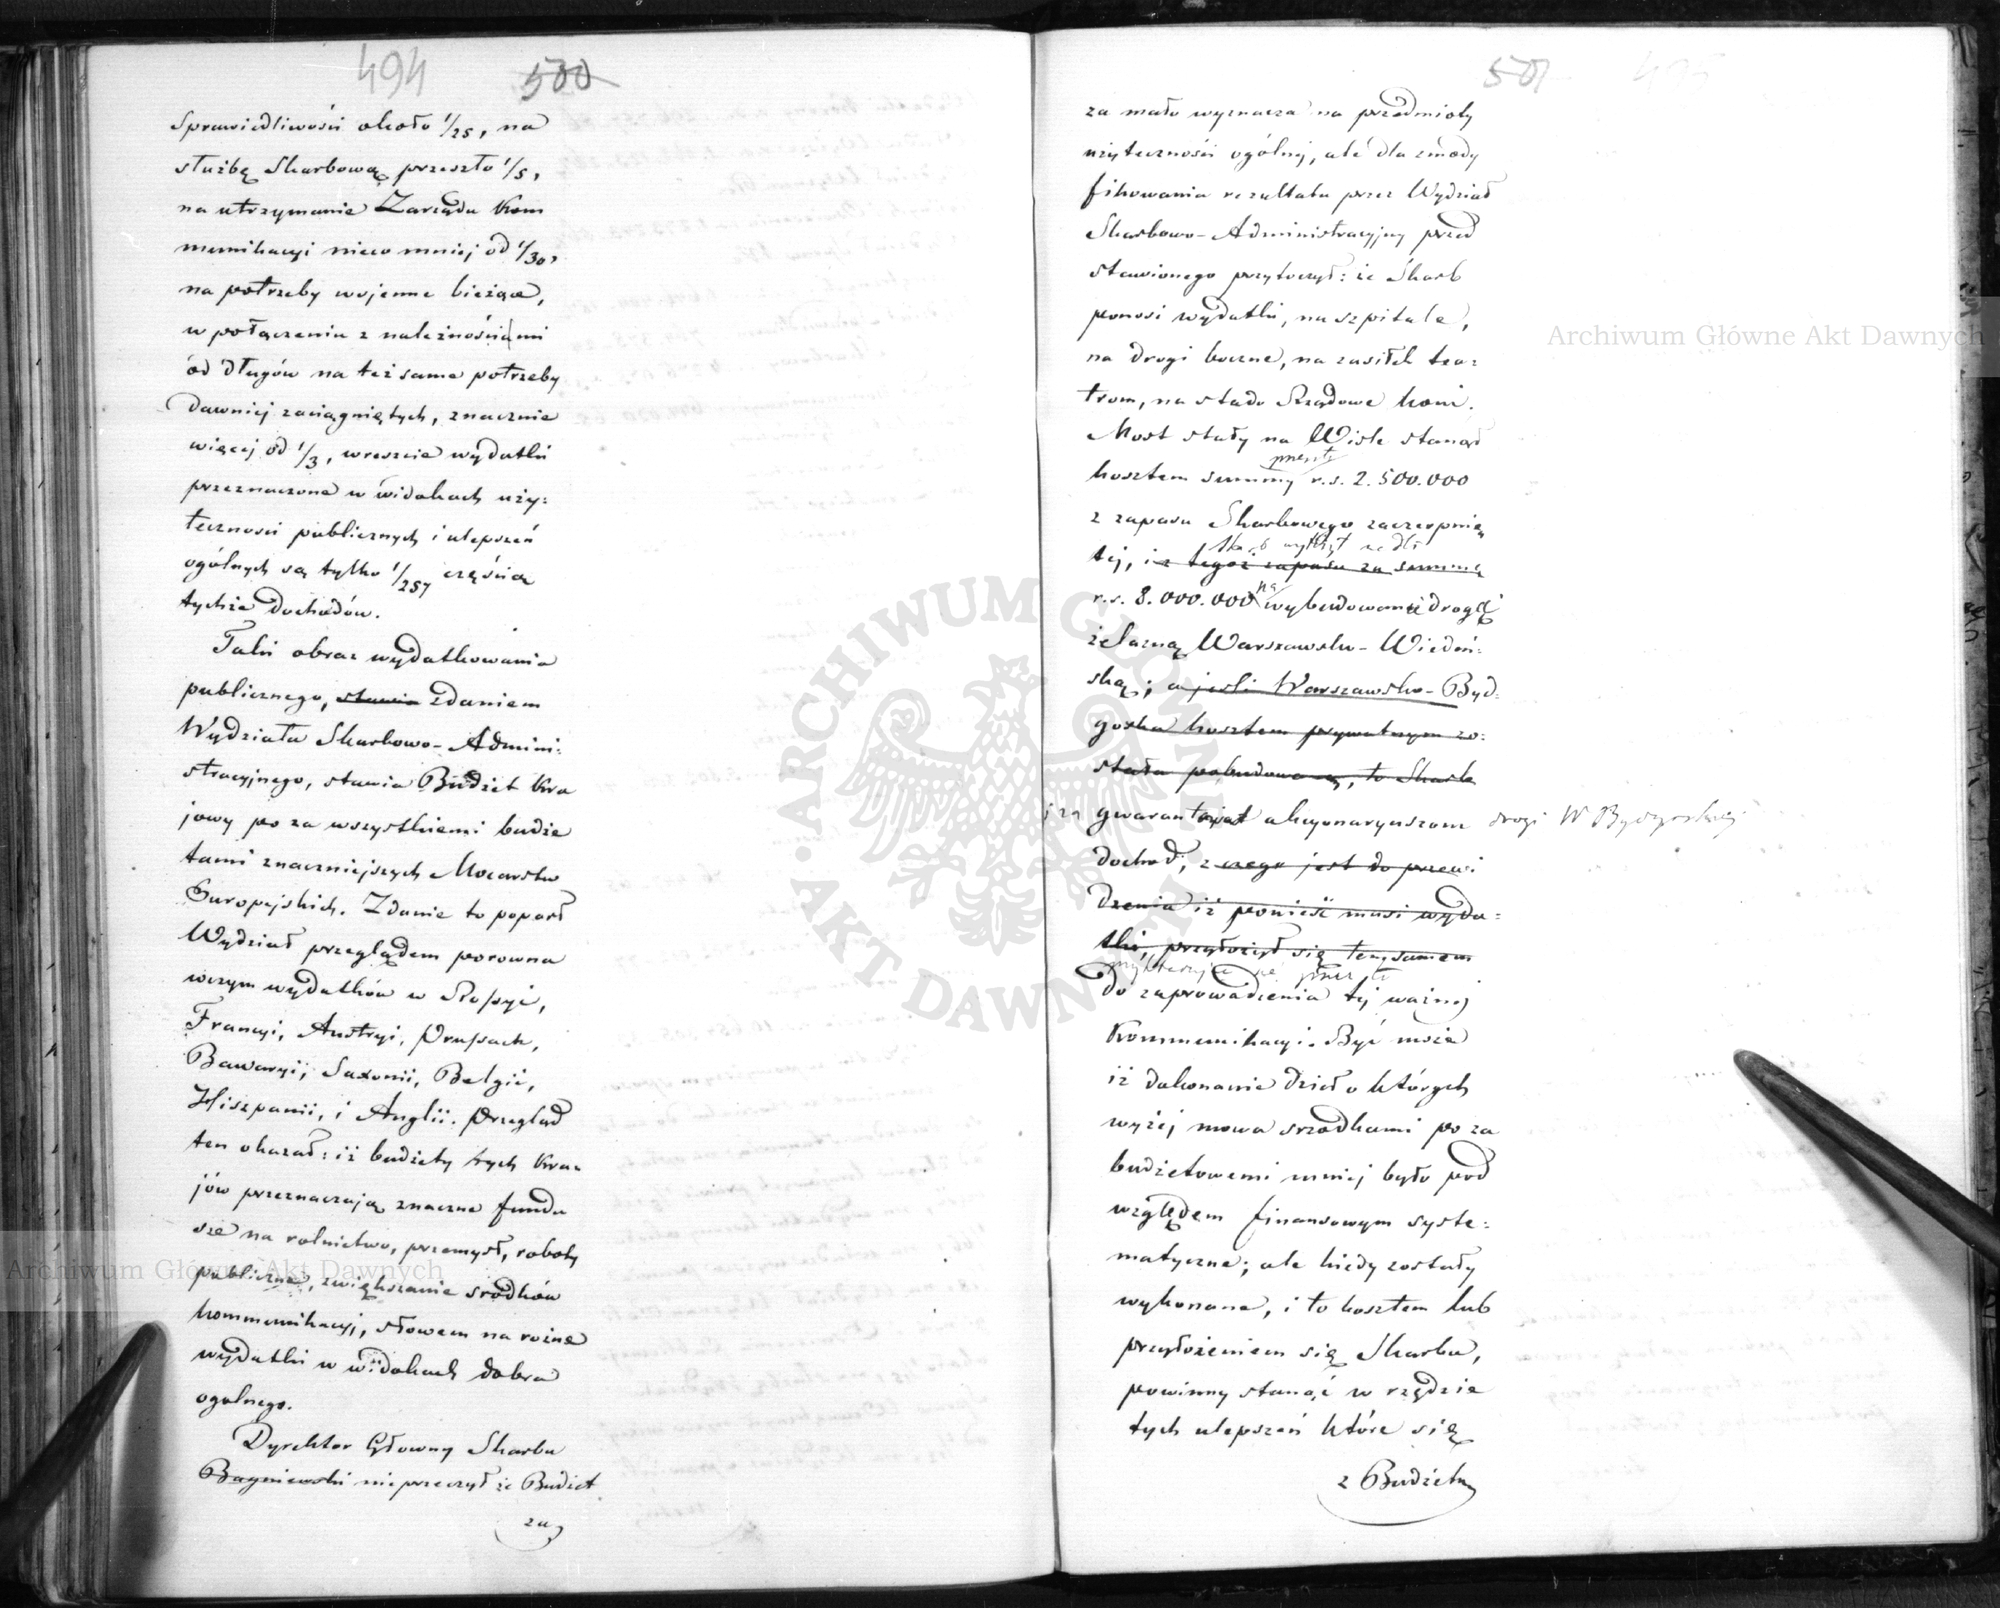 494 500
Sprawiedliwości około 1/25, na
służbę Skarbową przeszło 1/5,
na utrzymanie Zarządu Kom
munikacyi nieco mniej od 1/30,
na potrzeby wojenne bieżące,
w połączeniu z należnościami
od długów na też same potrzeby
dawniej zaciągniętych, znacznie
więcej od 1/3, wreszcie wydatki
przeznaczone w widokach uży:
teczności publicznych i ulepszeń
ogólnych są tylko 1/257 częścią
tychże dochodów.
Taki obraz wydatkowania
publicznego, stawia zdaniem
Wydziału Skarbowo-Admini:
stracyjnego, stawia Budżet Kra
jowy po za wszystkiemi budże
tami znaczniejszych Mocarstw
Europejskich. Zdanie to poparł
Wydział przeglądem porowna
wczym wydatków w Rossyi,
Francyi, Austryi, Prussach,
Bawaryi, Saxonii, Belgii,
Hiszpanii, i Anglii. Przegląd
ten okazał: iż budżety tych Kra:
jów przeznaczają znaczne fundu
sze na rolnictwo, przemysł, roboty
publiczne, zwiększanie srodków
kommunikacyj, słowem na rożne
wydatki w widokach dobra
ogolnego.
Dyrektor Główny Skarbu
Bagniewski nieprzeczył że Budżet
za
501 495
za mało wyznacza na przedmioty
użyteczności ogólnej, ale dla zmody
fikowania rezultatu przez Wydział
Skarbowo-Administracyjny przed
stawionego przytoczył: że Skarb
ponosi wydatki, na szpitale,
na drogi boczne, na zasiłek tea:
trom, na stado Rządowe koni.
Most stały na Wiśle stanął
kosztem summy r.s. 2.500.000
z zapasu Skarbowego zaczerpnię
tej, i z tegoż zapasu za summę
r.s. 8.000.000 na wybudowanie drogi
żelazną Warszawsko-Wiedeń:
ską; a jeśli Warszawsko-Byd:
goska kosztem prywatnym zo:
stała pobudowaną, to Skarb
gwarantował akcyonaryuszom drogi W Bydgoskiej
dochod, z czego jest do przewi
dzenia iż ponieść musi wyda:
tki, przyłożył się tem samem
do zaprowadzenia tej ważnej
Kommunikacyi. Być może
iż dokonanie dzieł o których
wyżej mowa srzodkami po za
budżetowemi mniej było pod
względem finansowym syste:
matyczne; ale kiedy zostały
wykonane, i to kosztem lub
przyłożeniem się Skarbu,
powinny stanąć w rzędzie
tych ulepszeń które się
z Budżetu
Archiwum Główne Akt Dawnych
Archiwum Główne Akt Dawnych
ARCHIWUM GŁÓWNE · AKT DAWNYCH ·